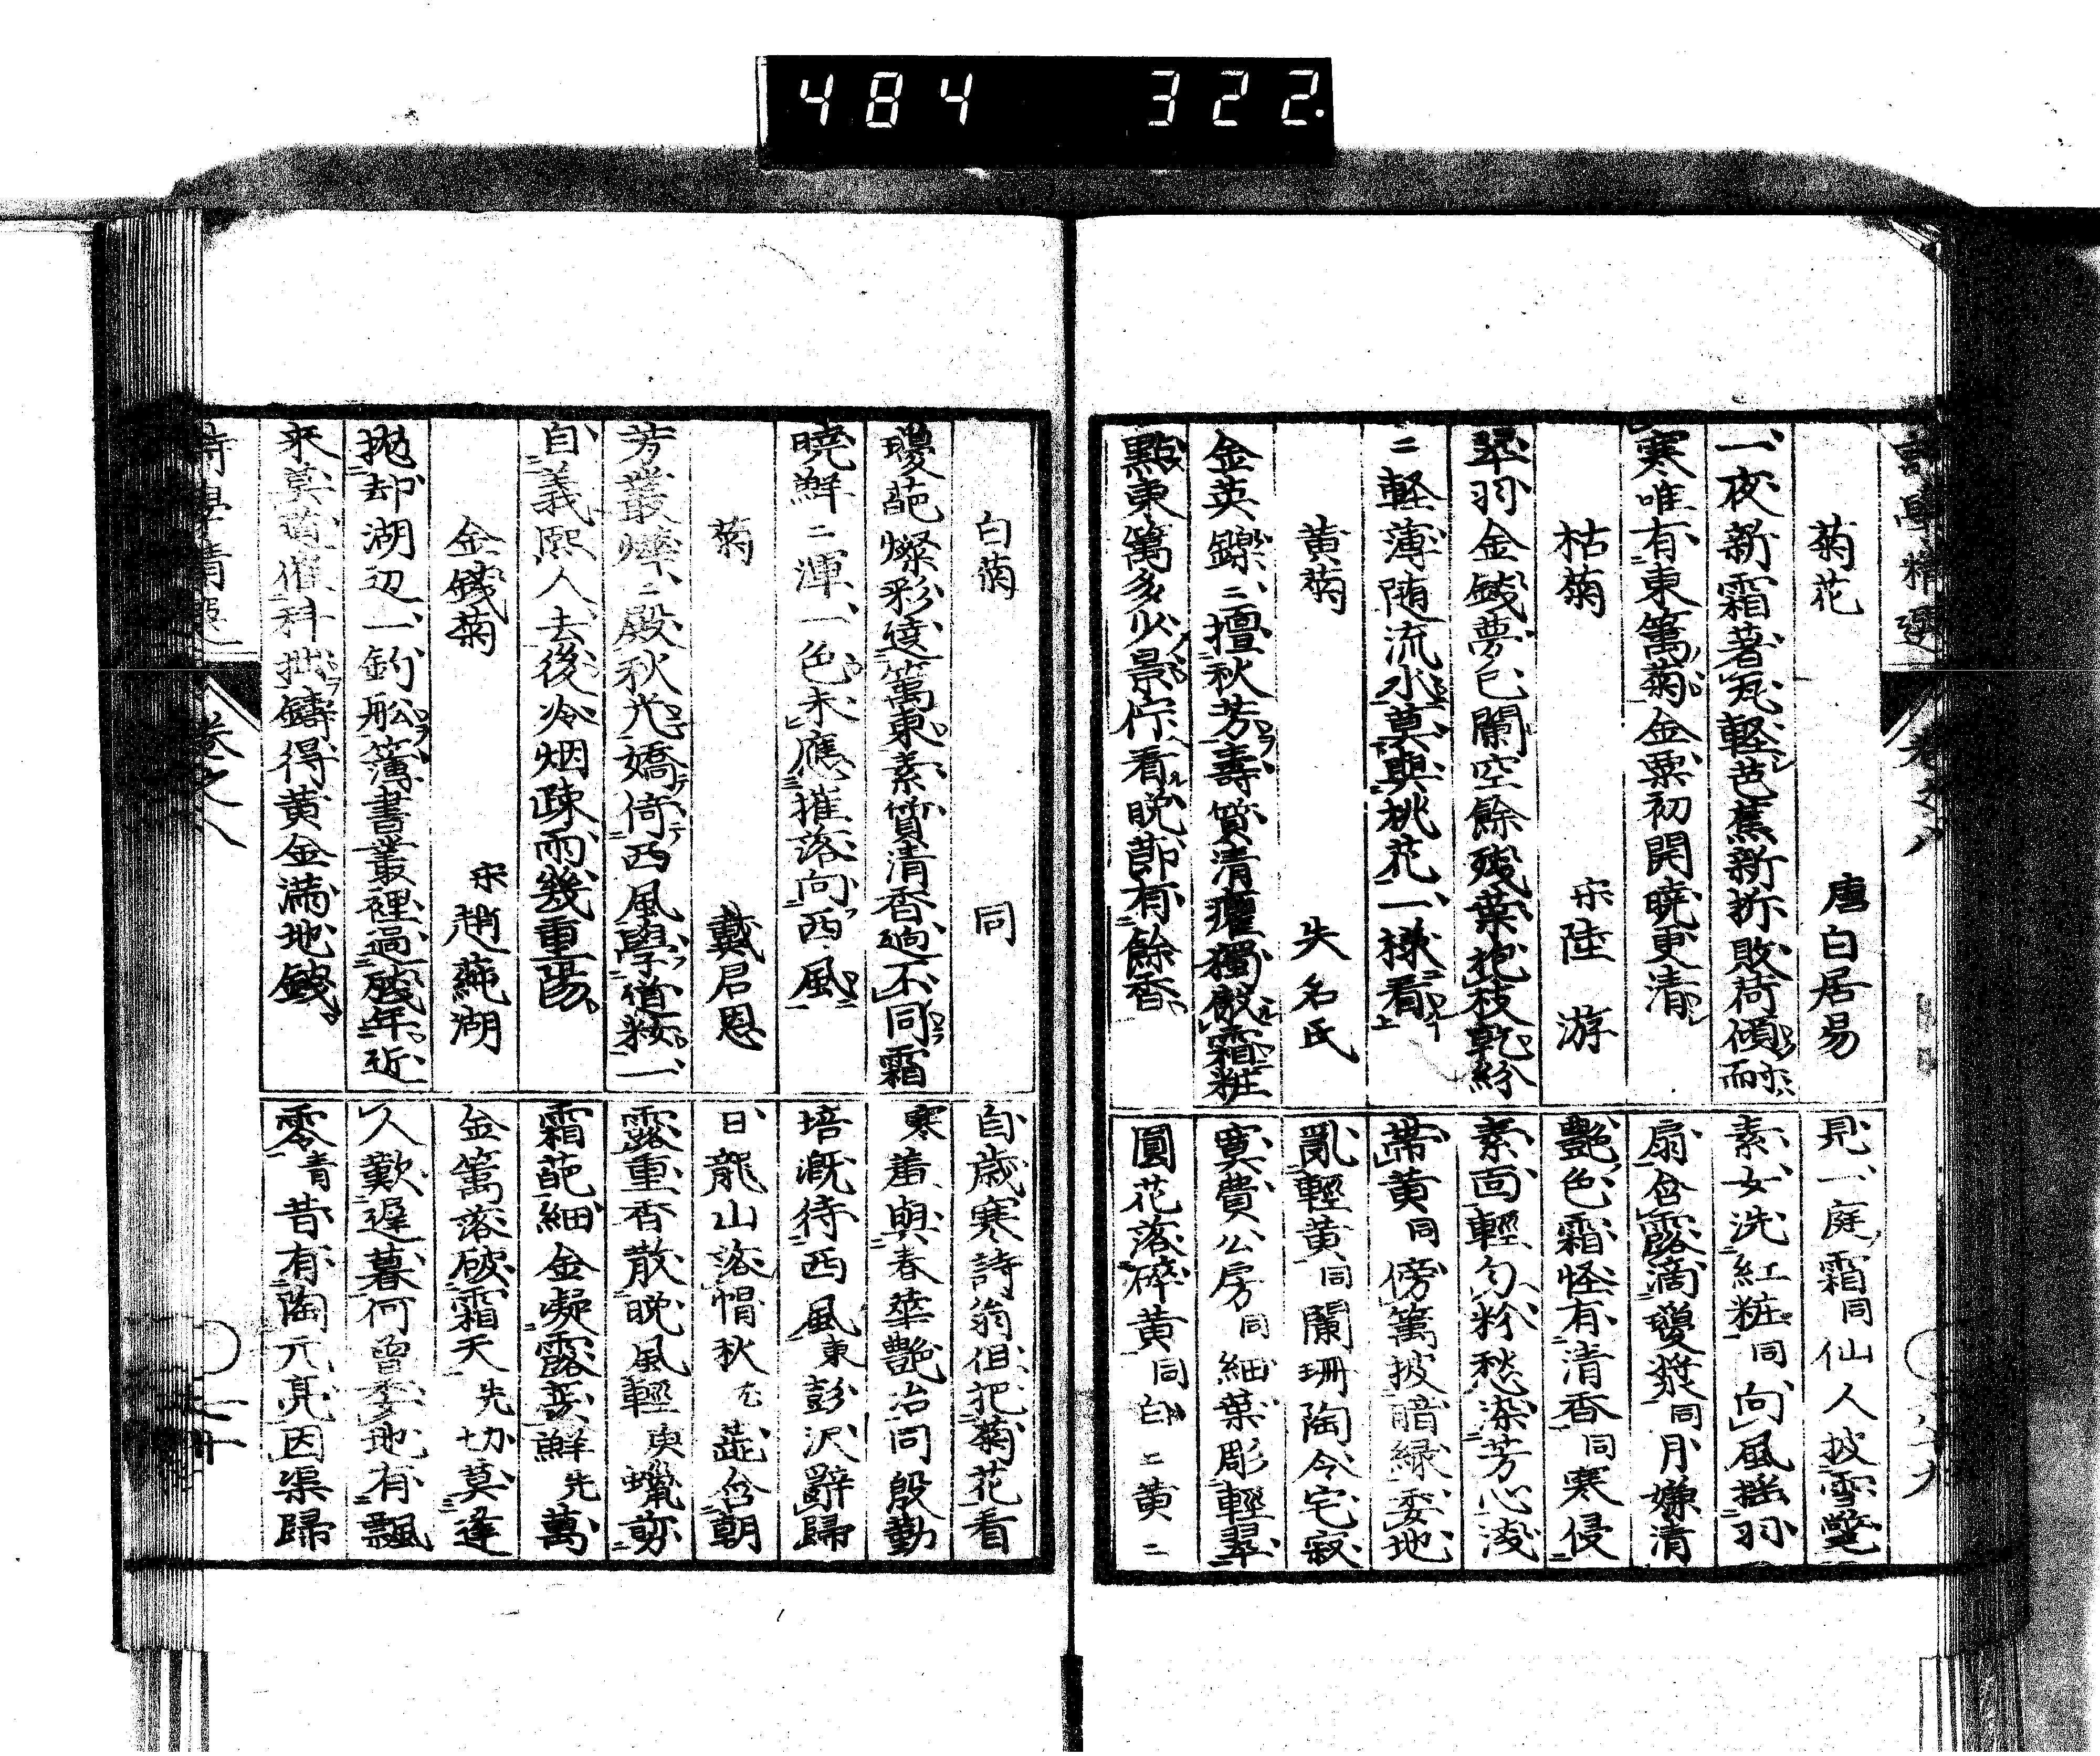 484 322.
詩學精選 卷之八
菊花 唐白居易
一夜新霜著瓦軽芭蕉新折敗荷傾耐
寒唯有東籬菊金粟初開曉更清
枯菊 宋陸游
翠羽金錢夢已闌空餘殘葉抱枝乾紛
〻軽薄随流水莫與桃花一樣看
黄菊 失名氏
金英鑠〻擅秋芳壽質清癯獨傲霜粧
點東籬多少景佇看晩節有餘香
見一庭霜同仙人披雪氅
素女洗紅粧同向風揺羽
扇含露滴瓊漿同月嫌清
艶色霜怪有清香同寒侵
素面輕勻粉愁染芳心淺
帯黄同傍籬披暗緑委地
亂輕黄同闌珊陶令宅寂
寞費公房同細葉彫輕翠
圓花落碎黄同白〻黄〻
白菊 同
瓊葩燦彩遶籬東素質清香逈不同霜
曉鮮〻渾一色未應摧落向西風
菊 戴君恩
芳叢燁〻殿秋光嬌倚西風學道粧一
自義熈人去後冷烟疎雨幾重陽
金錢菊 宋趙蓴湖
抛却湖辺一釣舩簿書叢裡過殘年近
来莫道催科拙鑄得黄金満地錢
自歳寒詩翁但把菊花看
寒羞與春華艶冶同殷勤
培漑待西風東彭沢辭歸
日龍山落帽秋尤蕋含朝
露重香散晩風輕庚蠟剪
霜葩細金凝露蕚鮮先萬
金籬落破霜天先切莫逢
人歎遅暮何曽委地有飄
零青昔有陶元亮因渠歸
詩學精選 卷之八